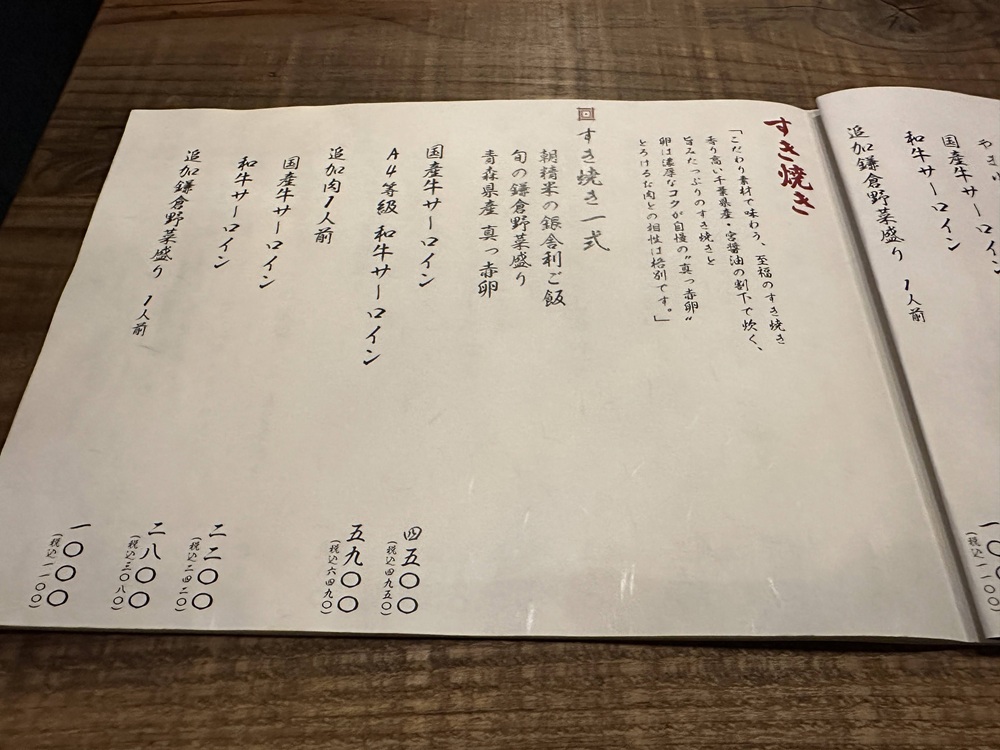 やき
国産牛サーロイン
和牛サーロイン
追加鎌倉野菜盛り 1人前
(税込一一〇〇)
すき焼き
「こだわり素材で味わう、至福のすき焼き
香り高い千葉県産・宮醤油の割下で炊く、
旨みたっぷりのすき焼きと
卵は濃厚なコクが自慢の"真っ赤卵"
とろけるお肉との相性は格別です。」
すき焼き一式
朝精米の銀舎利ご飯
旬の鎌倉野菜盛り
青森県産 真っ赤卵
国産牛サーロイン 四五〇〇
(税込四九五〇)
A4等級 和牛サーロイン 五九〇〇
(税込六四九〇)
追加肉1人前
国産牛サーロイン 二二〇〇
(税込二四二〇)
和牛サーロイン 二八〇〇
(税込三〇八〇)
追加鎌倉野菜盛り 1人前 一〇〇〇
(税込一一〇〇)